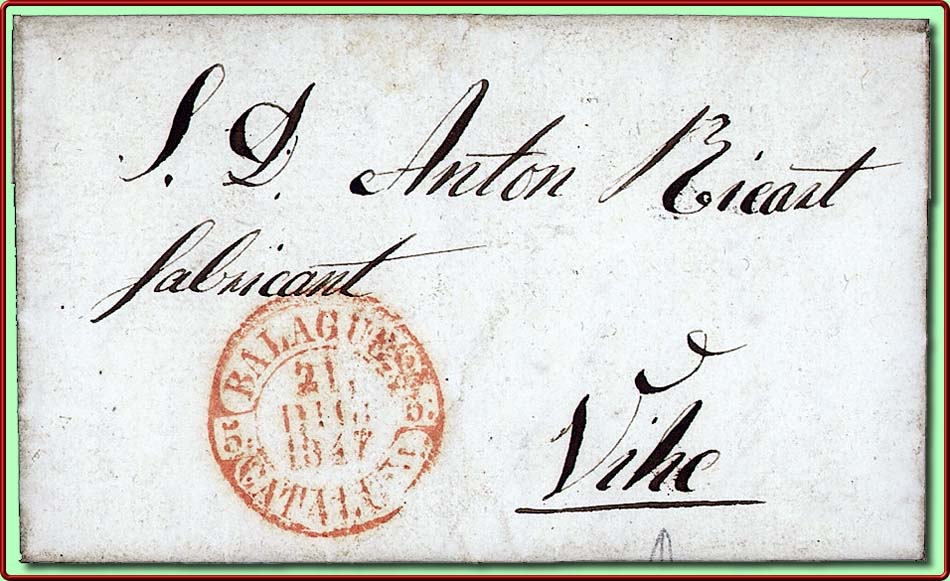 S. D. Anton Ricart
fabricant
BALAGUER
21
DIC
1847
CATALUÑ
Vihe